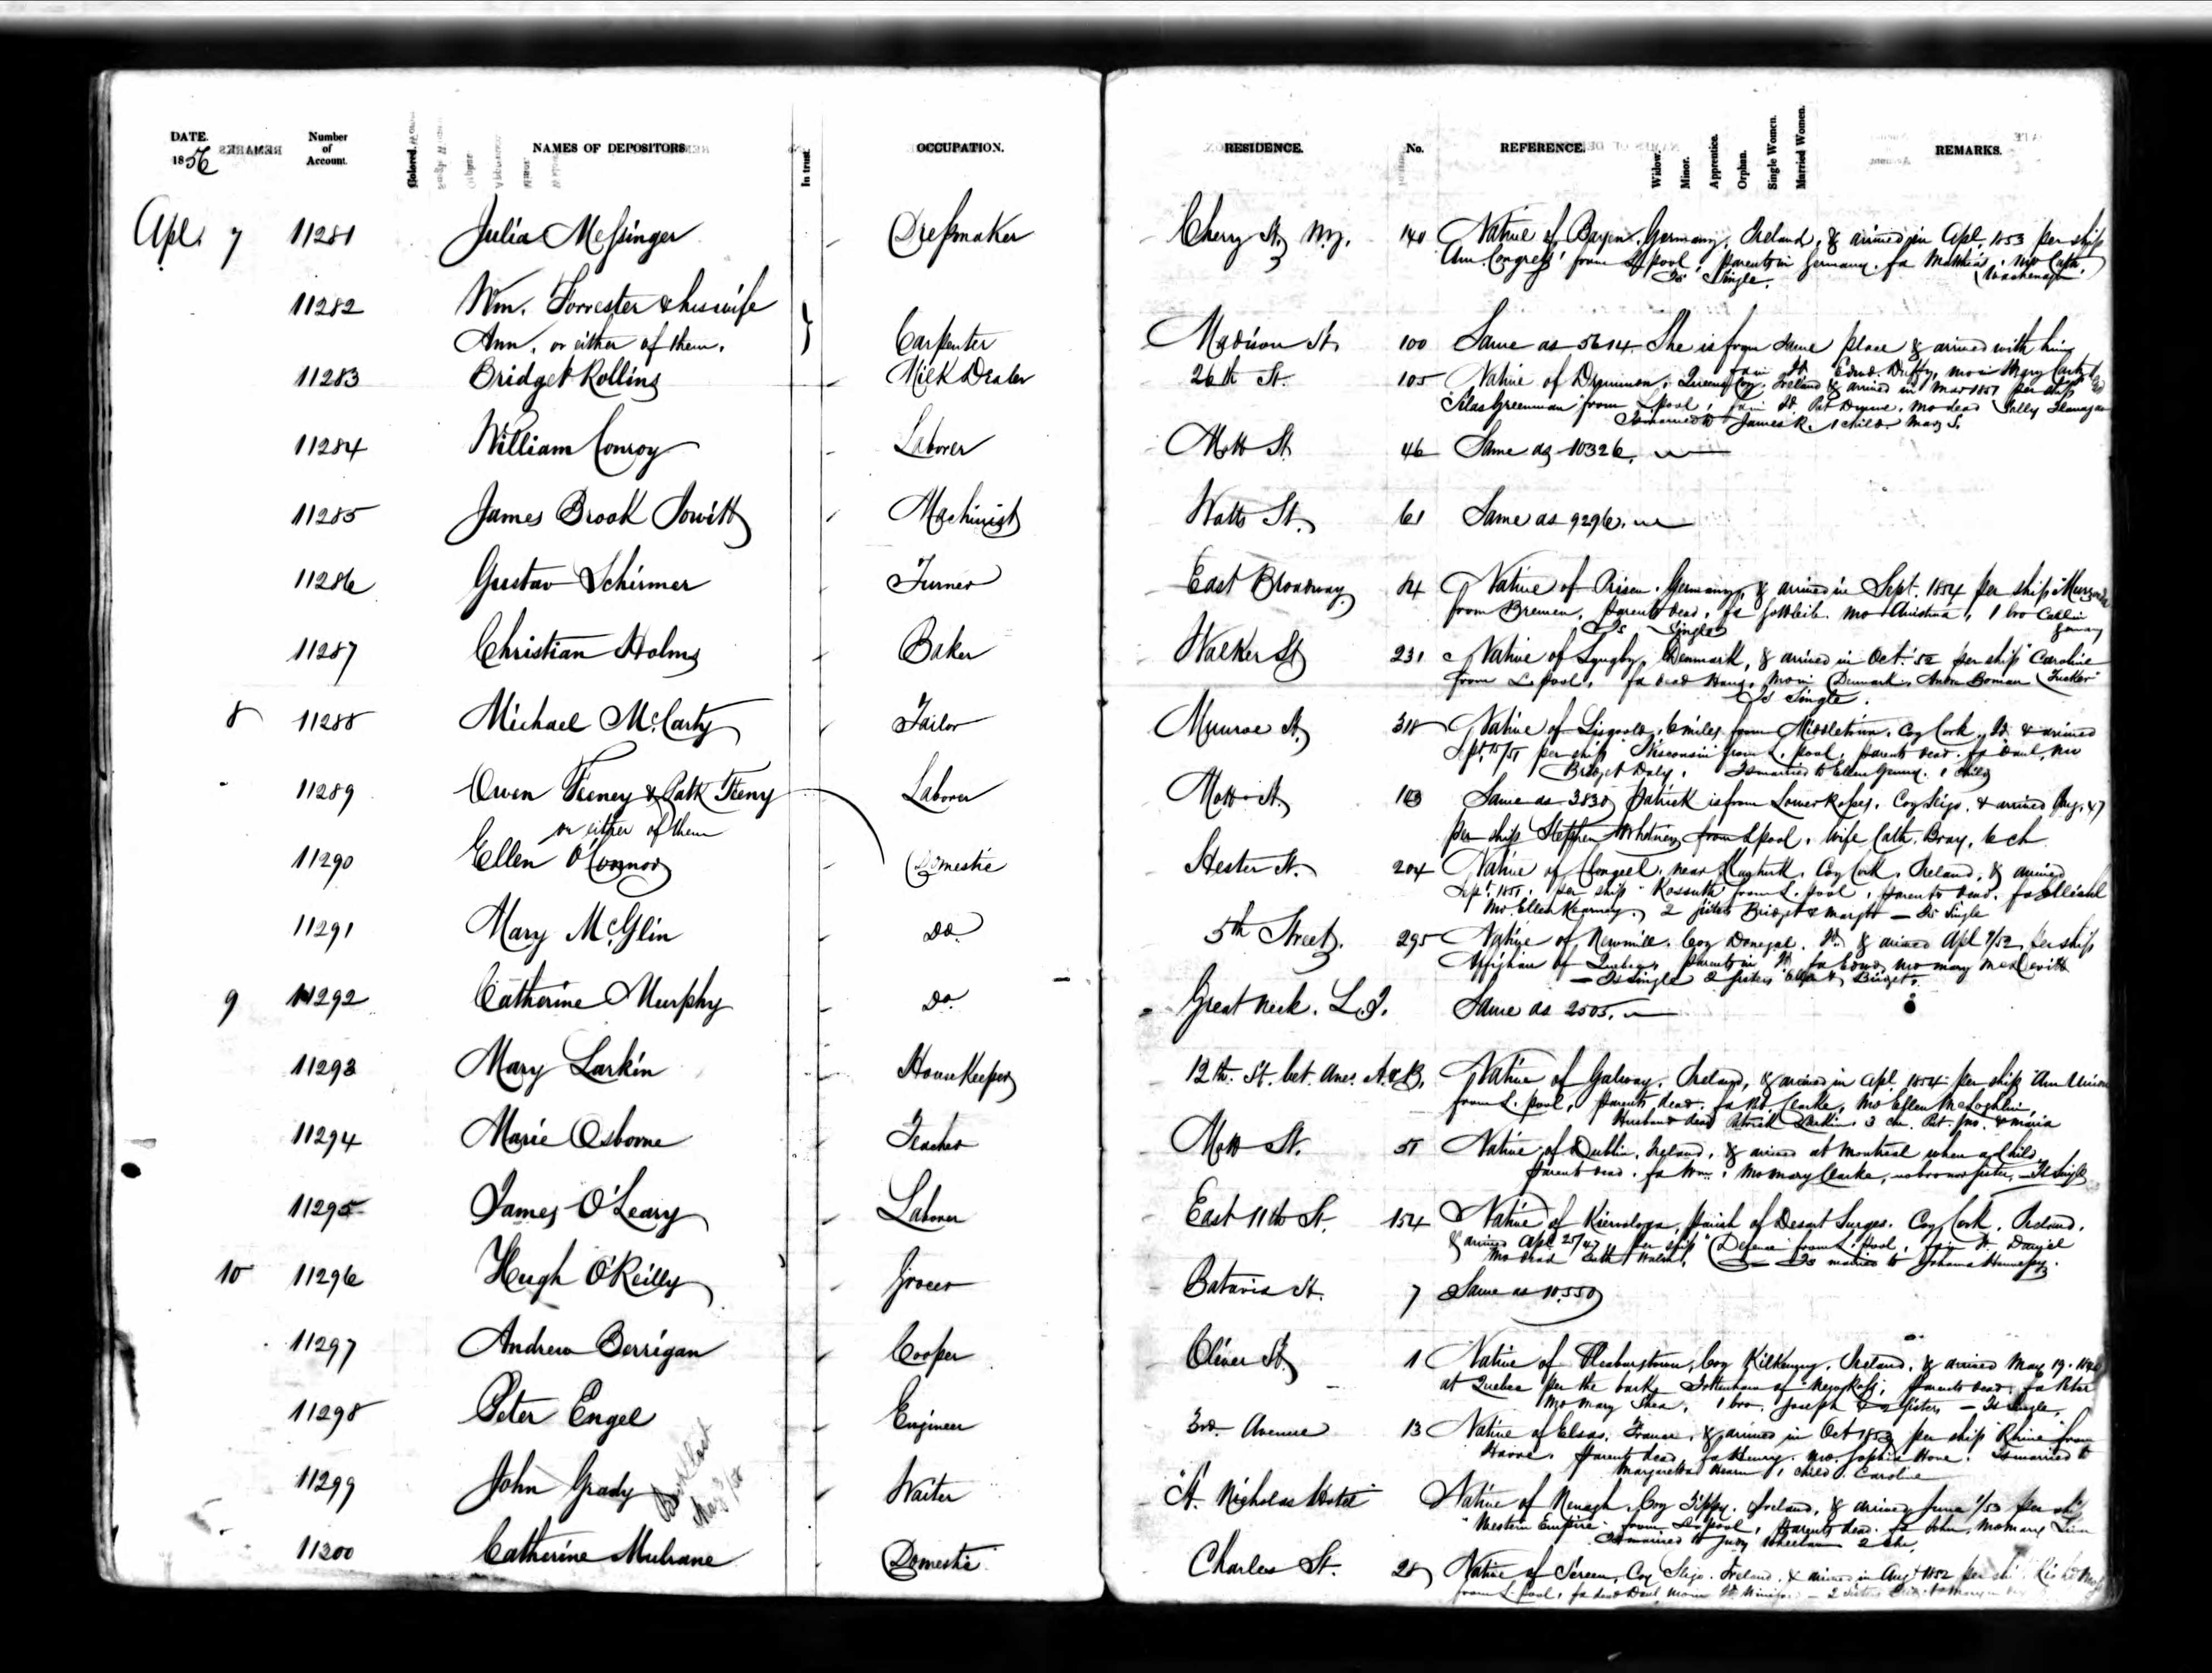 DATE. Number of Account. Colored. NAMES OF DEPOSITORS In trust. OCCUPATION. RESIDENCE. No. REFERENCE. Widow. Minor. Apprentice. Orphan. Single Women. Married Women. REMARKS.
1856
Apl. 7 11281 Julia Messinger Dressmaker Cherry St. N.Y. 140 Native of Germany, Ireland, & arrived in Apl. 1853 per ship
Am. Congress' from L.pool, parents in Germany. fa Matthias,
Is Single.
11282 Wm. Forrester & his wife
Ann, or either of them. Carpenter Madison St. 100 Same as 5614. She is from same place & arrived with him
11283 Bridget Rollins Milk Dealer 26th St. 105 Native of Queens Coy. Ireland & arrived in per ship
"Silas Greenman" from L.pool, mo dead
Is married to James R. 1 child Mary S.
11284 William Conroy Laborer Mott St. 46 Same as 10326.
11285 James Brook Jowitt Machinist Watts St. 61 Same as 9296.
11286 Gustav Schirmer Turner East Broadway 84 Native of Germany, & arrived in Sept. 1854 per ship
from Bremen, parents dead, fa Gottleib. mo Christina, 1 bro
Is Single
11287 Christian Holms Baker Walker St 231 Native of Lyngby, Denmark, & arrived in Oct. '52 per ship "Caroline
from L.pool, fa dead Hans, mo in Denmark,
Is Single.
8 11288 Michael McCarty Tailor Munroe St. 318 Native of Lisgoold, 6 miles from Middletown, Coy Cork, Id. & arrived
Sept. 15/51 per ship "Wisconsin" from L.pool, parents dead. fa Danl, mo
Bridget Daly, Is married to Ellen 1 child
11289 Owen Feeney & Patk Feeny Laborer Mott St. 103 Same as 3830 Patrick is from Lower Rosses, Coy Sligo, & arrived Aug. 47
or either of them per ship Stephen Whitney from L.pool, wife Cath. Bray, 6 ch
11290 Ellen O'Connor Domestic Hester St. 204 Native of Coy Cork, Ireland, & arrived
Sept. 1851, per ship "Kossuth" from L.pool, parents dead. fa
mo. Ellen Kearney, 2 sisters Bridget & Margt — Is Single
11291 Mary McGlin Do. 5th Street. 295 Native of Newmill, Coy Donegal, Id. & arrived Apl /52, per ship
parents in Id. fa Edwd, mo Mary McDevitt
— Is Single 2 sisters & Bridget.
9 11292 Catherine Murphy Do. Great Neck. L.I. Same as 2505.
11293 Mary Larkin HouseKeeper 12th. St. bet. Aves. A & B. Native of Galway, Ireland, & arrived in Apl. 1854 per ship Am Union
from L.pool, parents dead. fa Pat. Clarke, mo Ellen McLoghlin,
Husband dead Patrick Larkin. 3 ch. Pat. Jno. & Maria
11294 Marie Osborne Teacher Mott St. 51 Native of Dublin, Ireland, & arrived at Montreal when a child
parents dead. fa Wm., mo Mary Clarke, no bro nor sister, — Is Single
11295 James O'Leary Laborer East 11th St. 154 Native of parish of Desart Surges, Coy Cork, Ireland,
& arrived Apl 25/47 per ship "Defence" from L.pool, fa in Id. Daniel
mo dead Cath Walsh, Is married to Johanna Hennessy.
10 11296 Hugh O'Reilly Grocer Batavia St. 7 Same as 10,550
11297 Andrew Berrigan Cooper Oliver St. 1 Native of Coy Kilkenny, Ireland, & arrived May 19.
at Quebec per the bark Tottenham of New Ross, parents dead. fa Peter
mo Mary Shea, 1 bro. Joseph & 2 sisters — Is Single.
11298 Peter Engel Engineer 3rd Avenue 13 Native of Elsas, France, & arrived in Oct per ship Rhine from
Havre, parents dead fa Henry, mo. Sophia Is married to
Margaretha 1 child. Caroline
11299 John Grady Book lost Waiter St. Nicholas Hotel Native of Nenagh, Coy Tippy. Ireland, & arrived June /53 per ship
"Western Empire" from L.pool, parents dead. fa John, mo Mary
Is married to Judy Wheelan 2 ch.
11300 Catherine Mulrane Domestic Charles St. 28 Native of Coy Sligo. Ireland, & arrived in Aug 1852 per
from L.pool, fa dead Danl, mo in Id. — 2 sisters